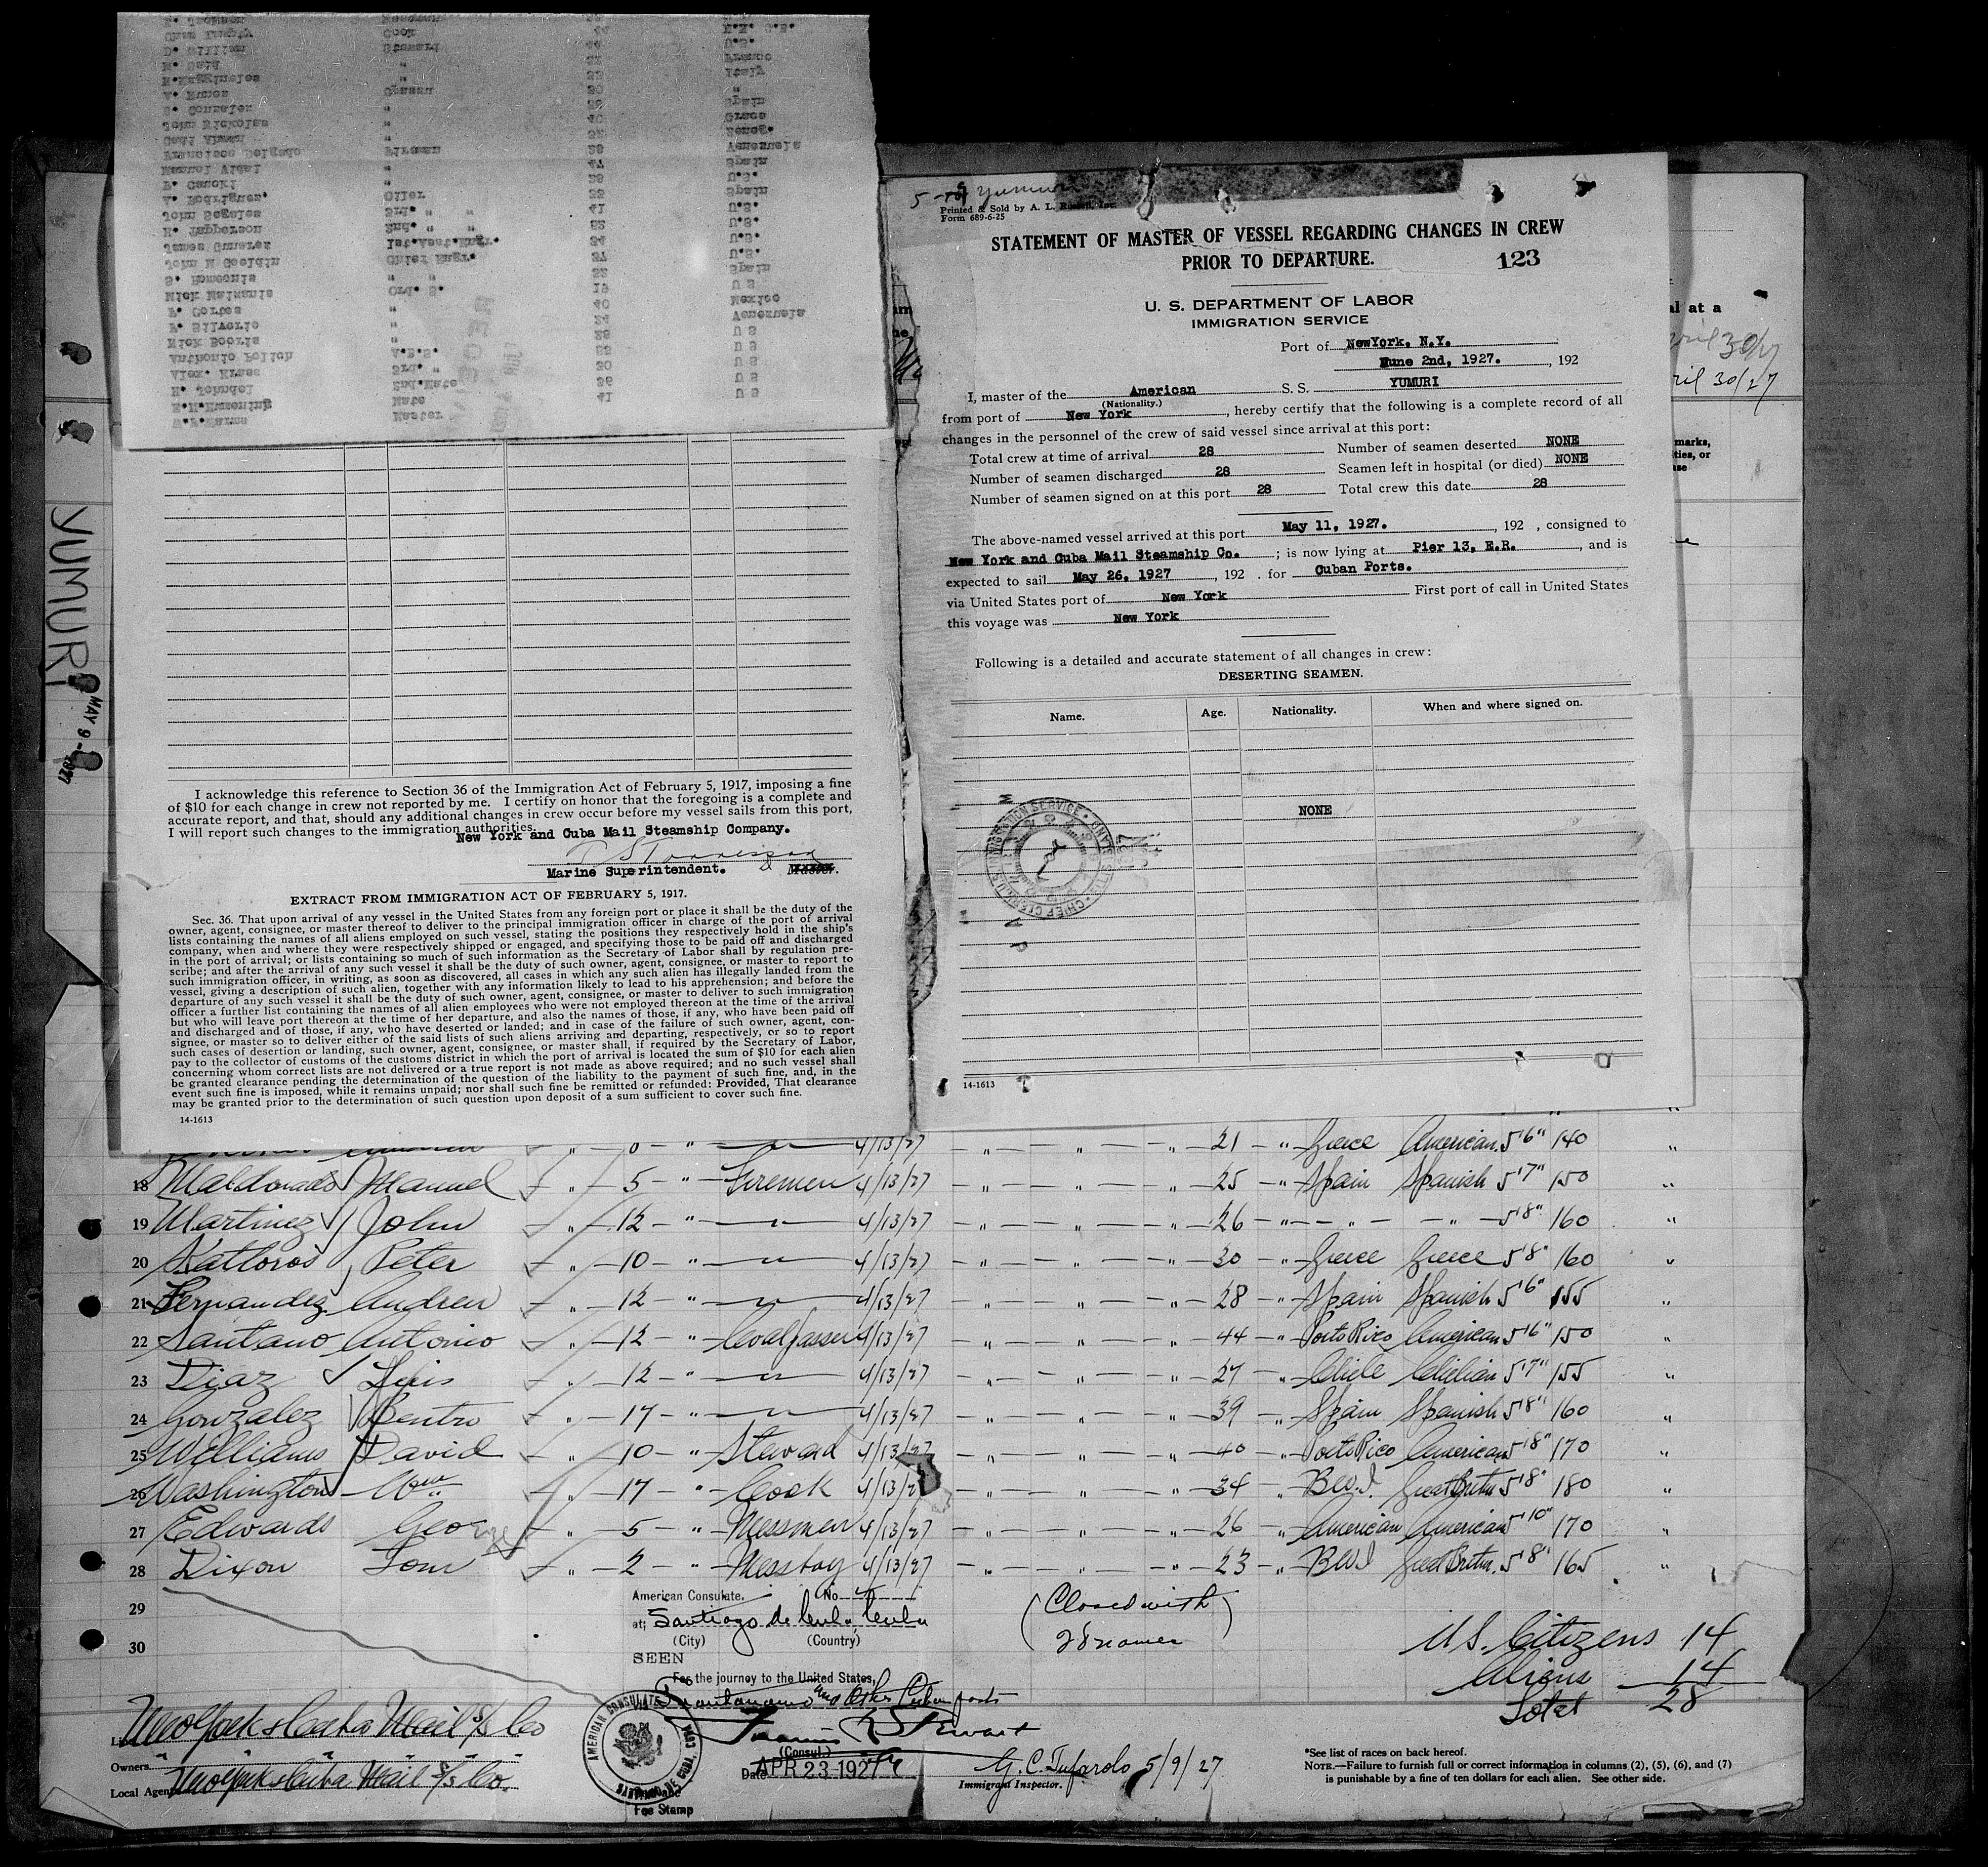 5-9 Yumuri
Printed & Sold by A. L.
Form 689-6-25
STATEMENT OF MASTER OF VESSEL REGARDING CHANGES IN CREW
PRIOR TO DEPARTURE.
123
U. S. DEPARTMENT OF LABOR
IMMIGRATION SERVICE
Port of NewYork, N.Y.
June 2nd, 1927. , 192
I, master of the American S. S. YUMURI
(Nationality.)
from port of New York , hereby certify that the following is a complete record of all
changes in the personnel of the crew of said vessel since arrival at this port:
Total crew at time of arrival 28 Number of seamen deserted NONE
Number of seamen discharged 28 Seamen left in hospital (or died) NONE
Number of seamen signed on at this port 28 Total crew this date 28
The above-named vessel arrived at this port May 11, 1927. , 192 , consigned to
New York and Cuba Mail Steamship Co. ; is now lying at Pier 13, E.R. , and is
expected to sail May 26, 1927 , 192 . for Cuban Ports.
via United States port of New York First port of call in United States
this voyage was New York
Following is a detailed and accurate statement of all changes in crew:
DESERTING SEAMEN.
Name. Age. Nationality. When and where signed on.
NONE
14-1613
W.F.Warms Master 41 U S
E.H.Kussning Mate 36 U S
H. Johndel 2nd.Mate 30 U S
Alex. Krass 3rd. " 52 U S
Anthonio Polich A.B.S. 28 U S
Nick Booris " 24 Venezuela
F. Silverio " 40 Mexico
F. Cortes Ord. S. 19 U S
Nick Matsanis " " 32 Spain
S. Romeonis Chief Engr. 37 U.S.
John M Gooldin 1st.Asst.Engr. 34 U.S.
James Gunares 2nd. " " 52 U.S.
H. Tapperson 3rd. " " 41 U.S.
John Segales Oiler 33 Spain
A. Rodrigues. " 26 U.S.
F. Canoki " 47 Spain
Manuel Vidal Fireman 29 Venezuela
Francisco Delgado " 32 Seneg.
Gadi Ahman " 40 Grece
John Nickolas " 38 Spain
S. Gonzalez Cpassn 30 "
A. Funes " 33 Italy
N. Said " 22 France
D. William Steward 44 U.S.
Cook 44
I acknowledge this reference to Section 36 of the Immigration Act of February 5, 1917, imposing a fine
of $10 for each change in crew not reported by me. I certify on honor that the foregoing is a complete and
accurate report, and that, should any additional changes in crew occur before my vessel sails from this port,
I will report such changes to the immigration authorities.
New York and Cuba Mail Steamship Company.
Marine Superintendent. Master.
EXTRACT FROM IMMIGRATION ACT OF FEBRUARY 5, 1917.
Sec. 36. That upon arrival of any vessel in the United States from any foreign port or place it shall be the duty of the
owner, agent, consignee, or master thereof to deliver to the principal immigration officer in charge of the port of arrival
lists containing the names of all aliens employed on such vessel, stating the positions they respectively hold in the ship's
company, when and where they were respectively shipped or engaged, and specifying those to be paid off and discharged
in the port of arrival; or lists containing so much of such information as the Secretary of Labor shall by regulation pre-
scribe; and after the arrival of any such vessel it shall be the duty of such owner, agent, consignee, or master to report to
such immigration officer, in writing, as soon as discovered, all cases in which any such alien has illegally landed from the
vessel, giving a description of such alien, together with any information likely to lead to his apprehension; and before the
departure of any such vessel it shall be the duty of such owner, agent, consignee, or master to deliver to such immigration
officer a further list containing the names of all alien employees who were not employed thereon at the time of the arrival
but who will leave port thereon at the time of her departure, and also the names of those, if any, who have been paid off
and discharged and of those, if any, who have deserted or landed; and in case of the failure of such owner, agent, con-
signee, or master so to deliver either of the said lists of such aliens arriving and departing, respectively, or so to report
such cases of desertion or landing, such owner, agent, consignee, or master shall, if required by the Secretary of Labor,
pay to the collector of customs of the customs district in which the port of arrival is located the sum of $10 for each alien
concerning whom correct lists are not delivered or a true report is not made as above required; and no such vessel shall
be granted clearance pending the determination of the question of the liability to the payment of such fine, and, in the
event such fine is imposed, while it remains unpaid; nor shall such fine be remitted or refunded: Provided, That clearance
may be granted prior to the determination of such question upon deposit of a sum sufficient to cover such fine.
14-1613
YUMURI
MAY 9 - 1927
al at a
April 30/27
ril 30/27
marks,
ties, or
ase
4/13/27 21 " Greece American 5'6" 140 "
18 Maldonado Manuel " 5 " Firemen 4/13/27 " " " 25 " Spain Spanish 5'7" 150 "
19 Martinez John " 12 " " 4/13/27 " " " 26 " " " 5'8" 160 "
20 Katloros Peter " 10 " " 4/13/27 " " " 30 " Greece Greece 5'8" 160 "
21 Fernandez Andrew " 12 " " 4/13/27 " " " 28 " Spain Spanish 5'6" 155 "
22 Santano Antonio " 12 " Coalpasser 4/13/27 " " " 44 " Porto Rico American 5'6" 150 "
23 Diaz Luis " 12 " " 4/13/27 " " " 27 " Chile Chilian 5'7" 155 "
24 Gonzalez Bentro " 17 " " 4/13/27 " " " 39 " Spain Spanish 5'8" 160 "
25 Williams David " 10 " Steward 4/13/27 " " " 40 " Porto Rico American 5'8" 170 "
26 Washington Wm " 17 " Cook 4/13/27 " " " 34 " B.W.I. Great Britn 5'8" 180 "
27 Edwards George " 5 " Messmen 4/13/27 " " " 26 " American American 5'10" 170 "
28 Dixon Tom " 2 " Messboy 4/13/27 " " " 23 " BWI Great Britn. 5'8" 165 "
29
30
American Consulate. No
at Santiago de Cuba Cuba
(City) (Country)
SEEN
For the journey to the United States,
via Guantanamo and other Cuban ports
(Consul.)
Date APR 23 1927
AMERICAN CONSULATE
SANTIAGO DE CUBA
Fee Stamp
(Closed with
28 names)
U.S. Citizens 14
Aliens 14
Total 28
New York & Cuba Mail S/S Co
Owners " " " " "
Local Agents New York & Cuba Mail S/S Co.
G. C. Tufarolo 5/9/27
Immigrant Inspector.
*See list of races on back hereof.
NOTE.—Failure to furnish full or correct information in columns (2), (5), (6), and (7)
is punishable by a fine of ten dollars for each alien. See other side.